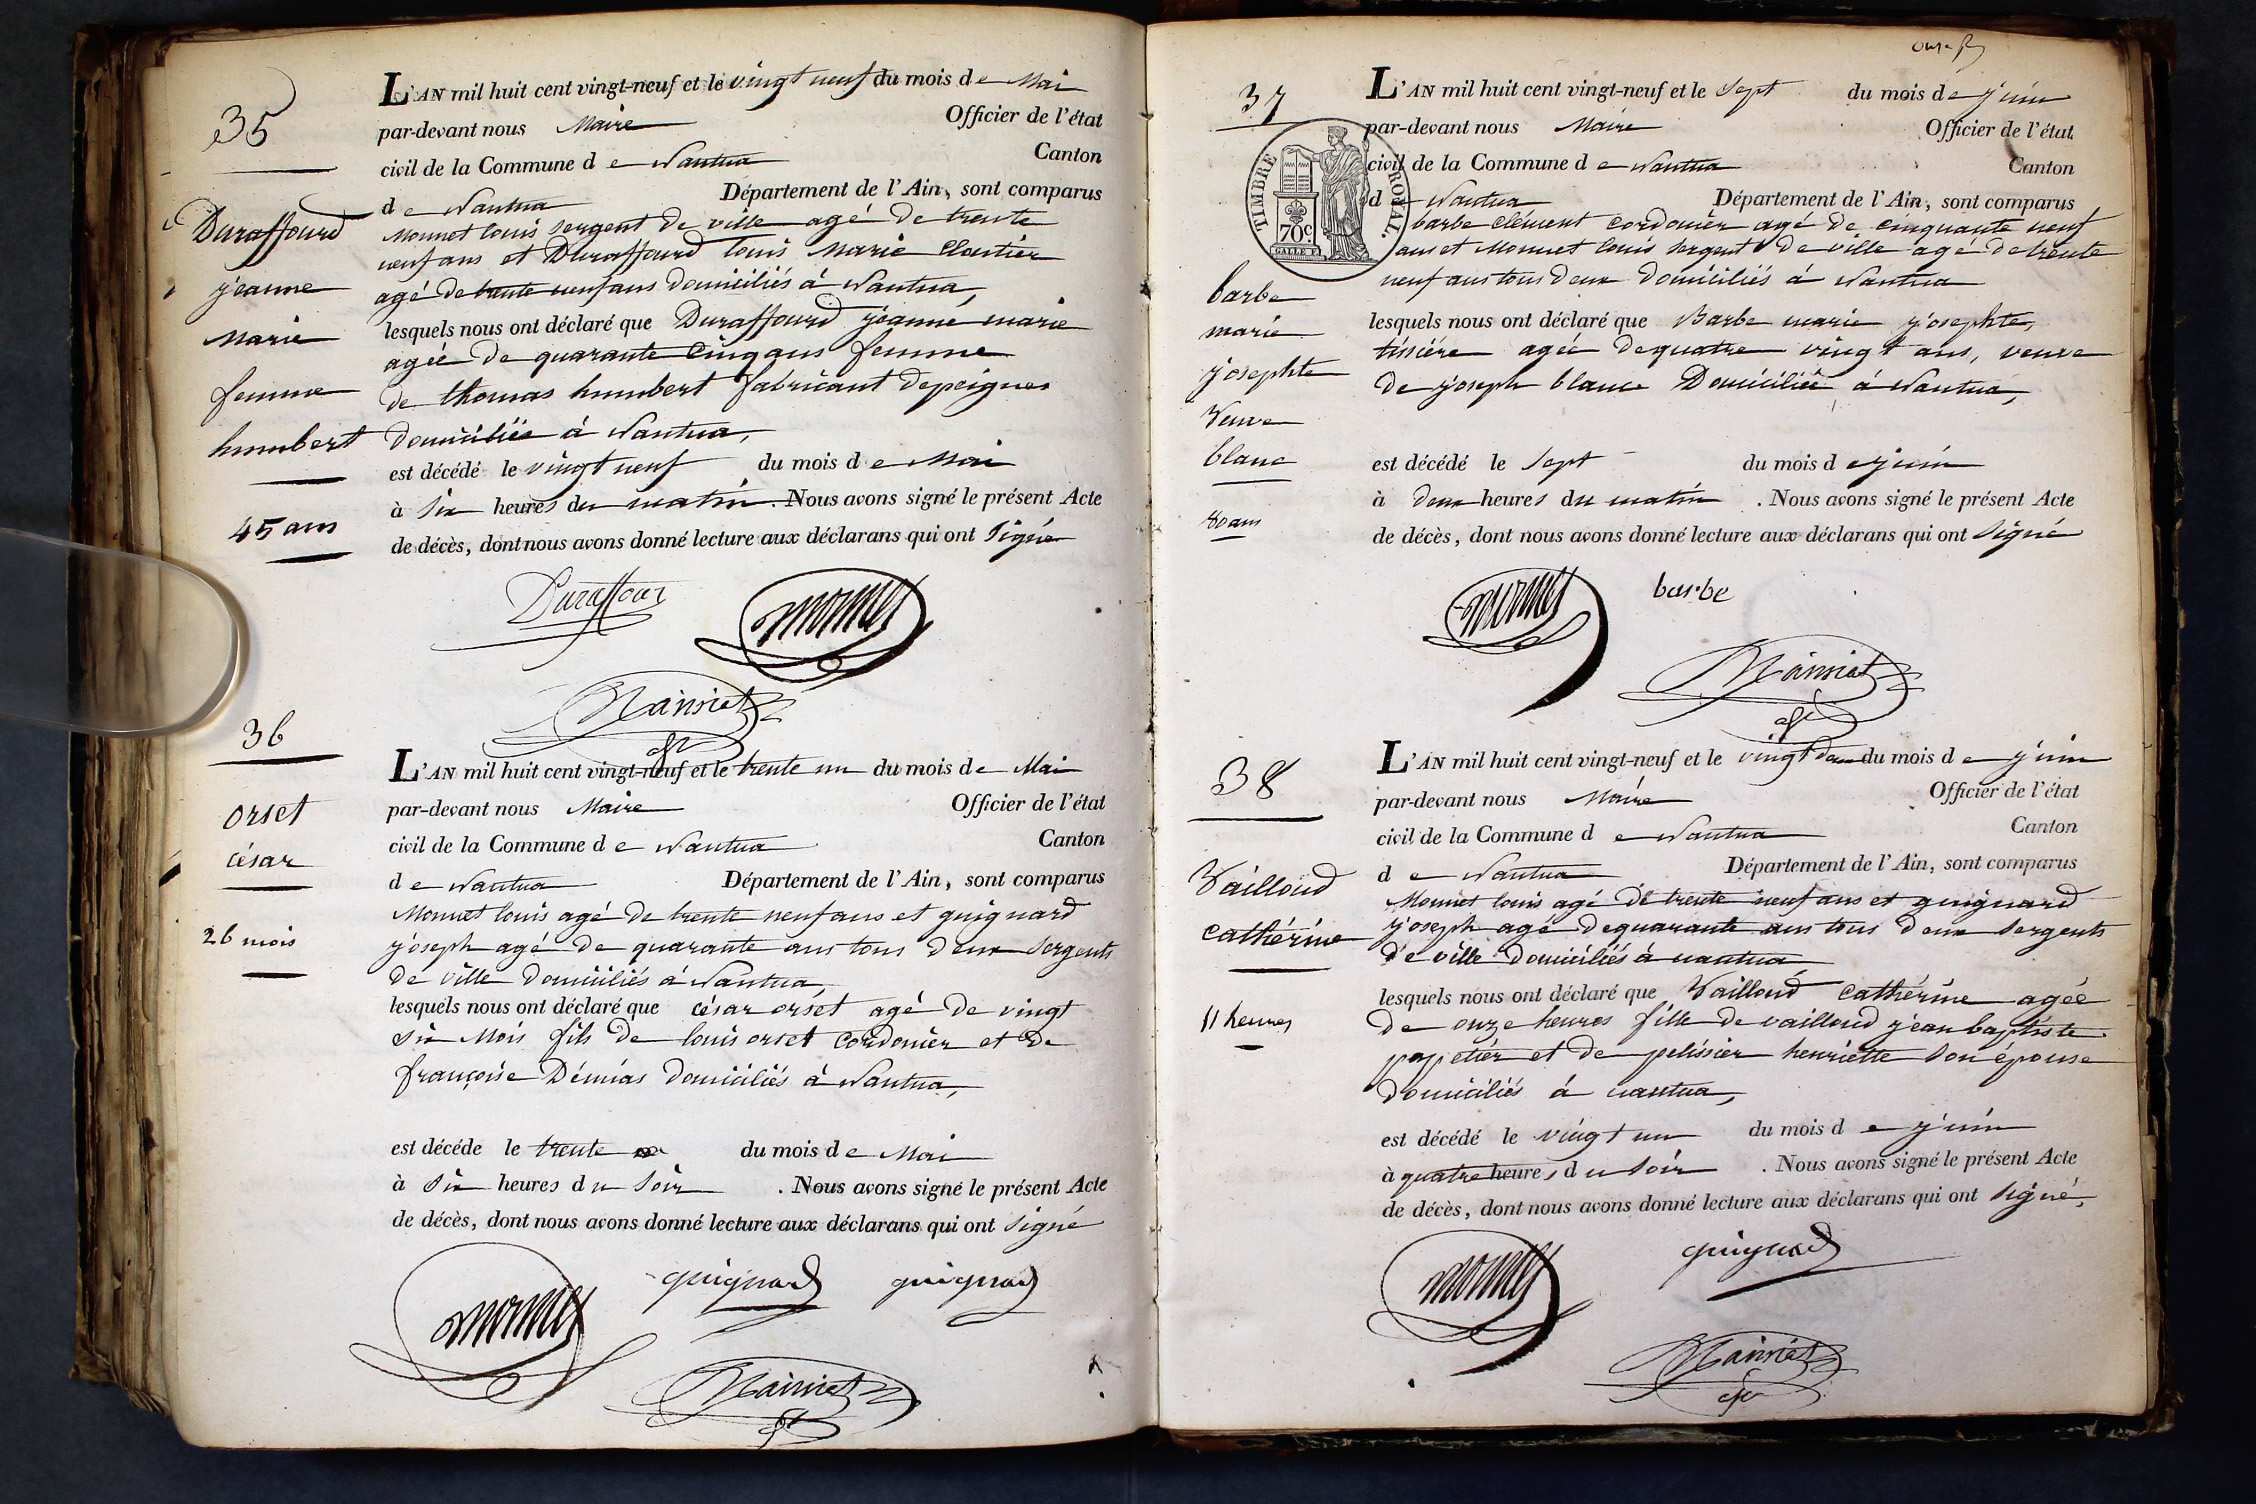 35
L'AN mil huit cent vingt-neuf et le vingt neuf du mois de Mai
par-devant nous Maire Officier de l'état
civil de la Commune de Nantua Canton
de Nantua Département de l'Ain, sont comparus
Duraffourd
jeanne
Marie
femme
humbert
45 ans
Monnet louis sergent de ville agé de trente
neuf ans et Duraffourd louis Marie Cloutier
agé de trente neuf ans domiciliés à Nantua,
lesquels nous ont déclaré que Duraffourd jéanne marie
agée de quarante cinq ans femme
de thomas humbert fabricant de peignes
domiciliée à Nantua,
est décédé le vingt neuf du mois de Mai
à six heures du matin. Nous avons signé le présent Acte
de décès, dont nous avons donné lecture aux déclarans qui ont signé
Duraffour
monnet
36
orset
césar
26 mois
L'AN mil huit cent vingt-neuf et le trente un du mois de Mai
par-devant nous Maire Officier de l'état
civil de la Commune de Nantua Canton
de Nantua Département de l'Ain, sont comparus
Monnet louis agé de trente neuf ans et guignard
joseph agé de quarante ans tous deux sergents
de ville domiciliés à Nantua,
lesquels nous ont déclaré que césar orset agé de vingt
six Mois fils de louis orset cordonier et de
françoise domiciliés à Nantua,
est décéde le trente du mois de Mai
à six heures du soir. Nous avons signé le présent Acte
de décès, dont nous avons donné lecture aux déclarans qui ont signé
monnet
guignard guignard
37
TIMBRE ROYAL.
70c
barbe
marie
josephte
Veuve
blanc
80 ans
L'AN mil huit cent vingt-neuf et le sept du mois de juin
par-devant nous Maire Officier de l'état
civil de la Commune de Nantua Canton
de Nantua Département de l'Ain, sont comparus
barbe clément cordonier agé de cinquante neuf
ans et Monnet louis sergent de ville agé de trente
neuf ans tous deux domiciliés à Nantua
lesquels nous ont déclaré que Barbe marie josephte,
tissiére agée de quatre vingt ans, veuve
de joseph blanc Domiciliée à Nantua,
est décédé le sept du mois de juin
à deux heures du matin. Nous avons signé le présent Acte
de décès, dont nous avons donné lecture aux déclarans qui ont signé
monnet barbe
38
Vailloud
cathérine
11 heures
L'AN mil huit cent vingt-neuf et le vingt deux du mois de juin
par-devant nous Maire Officier de l'état
civil de la Commune de Nantua Canton
de Nantua Département de l'Ain, sont comparus
Monnet louis agé de trente neuf ans et guignard
joseph agé de quarante ans tous deux sergents
de ville domiciliés à nantua
lesquels nous ont déclaré que Vailloud cathérine agée
de onze heures fille de vailloud jean baptiste
papetier et de pelissier henriette son épouse
domiciliés à nantua,
est décédé le vingt un du mois de juin
à quatre heures du soir. Nous avons signé le présent Acte
de décès, dont nous avons donné lecture aux déclarans qui ont signé,
monnet
guignard